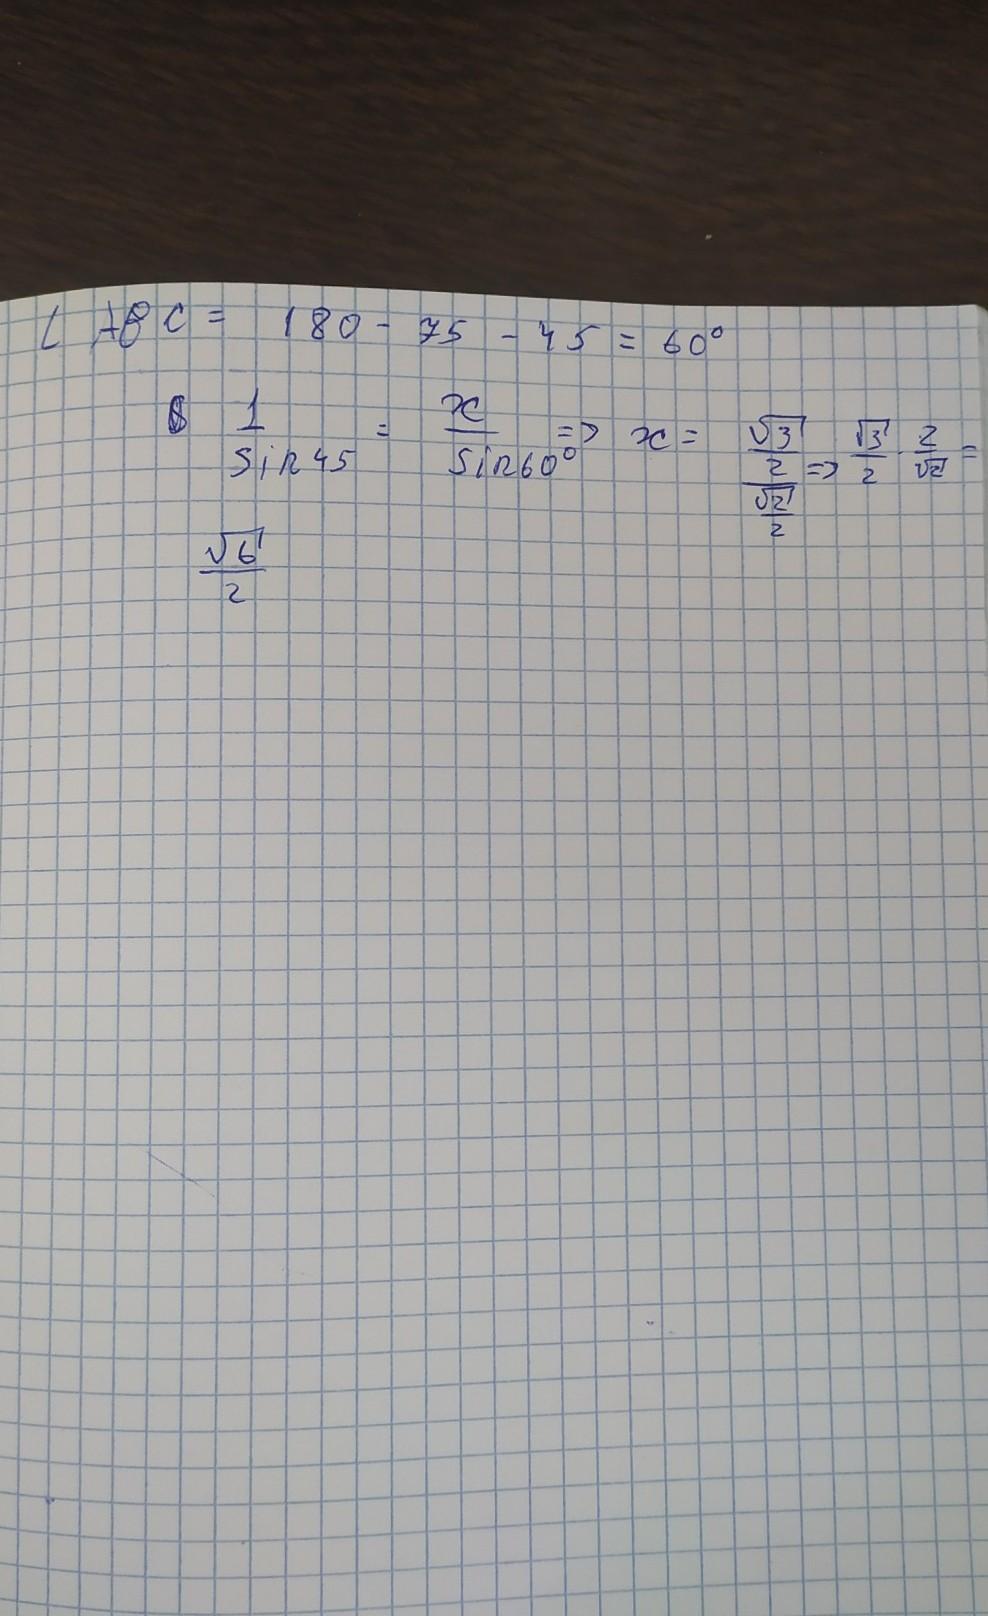 ∠ ABC = 180 - 75 - 45 = 60°
1/sin45 = x/sin60° => x = (√3/2)/(√2/2) => √3/2 · 2/√2 =
√6/2